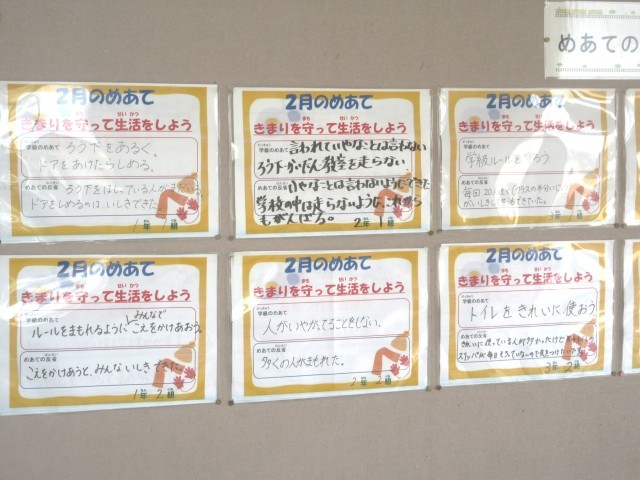 めあての
2月のめあて
きまりを守って生活をしよう
学級のめあて
ろう下をあるく。
ドアをあけたらしめる。
めあての反省
ろう下をはしっている人が
ドアをしめるのは、いしきできた。
1年 1組
2月のめあて
きまりを守って生活をしよう
学級のめあて
言われていやなことは言わない
ろう下・かいだん・教室を走らない
めあての反省
いやなことは言わないようにできた
学校の中は走らないように、これから
もがんばろう。
2年 1組
2月のめあて
きまりを守って生活をしよう
学級のめあて
学級ルールを守ろう
めあての反省
毎回20人
2月のめあて
きまりを守って生活をしよう
学級のめあて
みんなで
ルールをまもれるように こえをかけあおう。
めあての反省
こえをかけあうと、みんないしきできた。
1年 2組
2月のめあて
きまりを守って生活をしよう
学級のめあて
人がいやがることをしない。
めあての反省
多くの人がまもれた。
2年 2組
2月のめあて
きまりを守って生活をしよう
学級のめあて
トイレをきれいに使おう
めあての反省
きれいに使っている人が
スリッパが
3年 2組